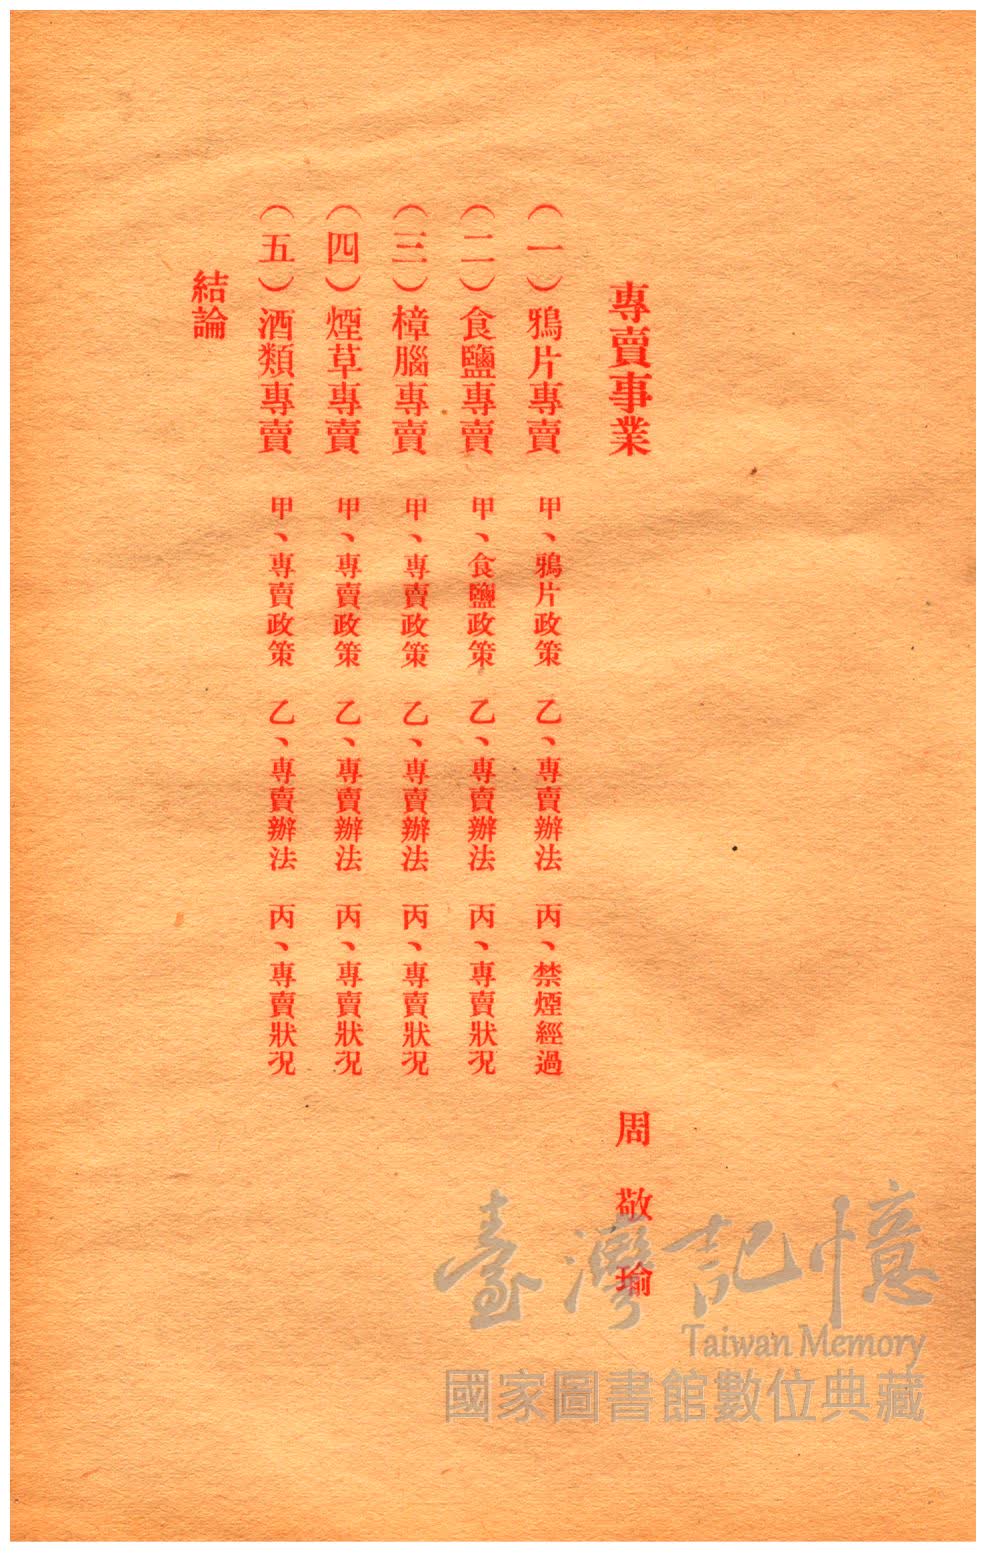 專賣事業　周敬瑜
（一）鴉片專賣　甲、鴉片政策　乙、專賣辦法　丙、禁煙經過
（二）食鹽專賣　甲、食鹽政策　乙、專賣辦法　丙、專賣狀況
（三）樟腦專賣　甲、專賣政策　乙、專賣辦法　丙、專賣狀況
（四）煙草專賣　甲、專賣政策　乙、專賣辦法　丙、專賣狀況
（五）酒類專賣　甲、專賣政策　乙、專賣辦法　丙、專賣狀況
結論
臺灣記憶
Taiwan Memory
國家圖書館數位典藏